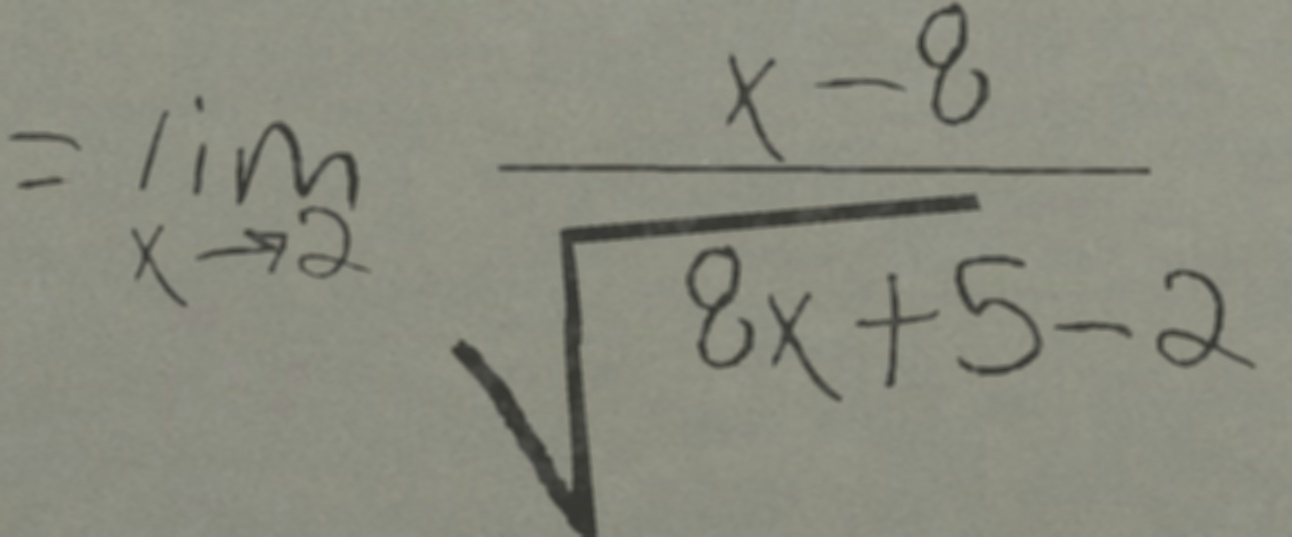 = lim x→2 \frac{x-8}{\sqrt{8x+5}-2}